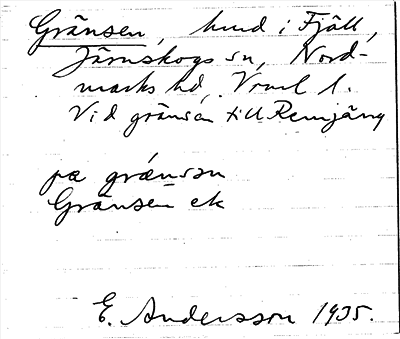 Gränsen, hmd i Fjäll,
Järnskogs sn, Nord-
marks hd, Vrml l.
Vid gränsen till Rennjäng
pæ grǽnsɔn
Gränsen ek
E. Andersson 1935.